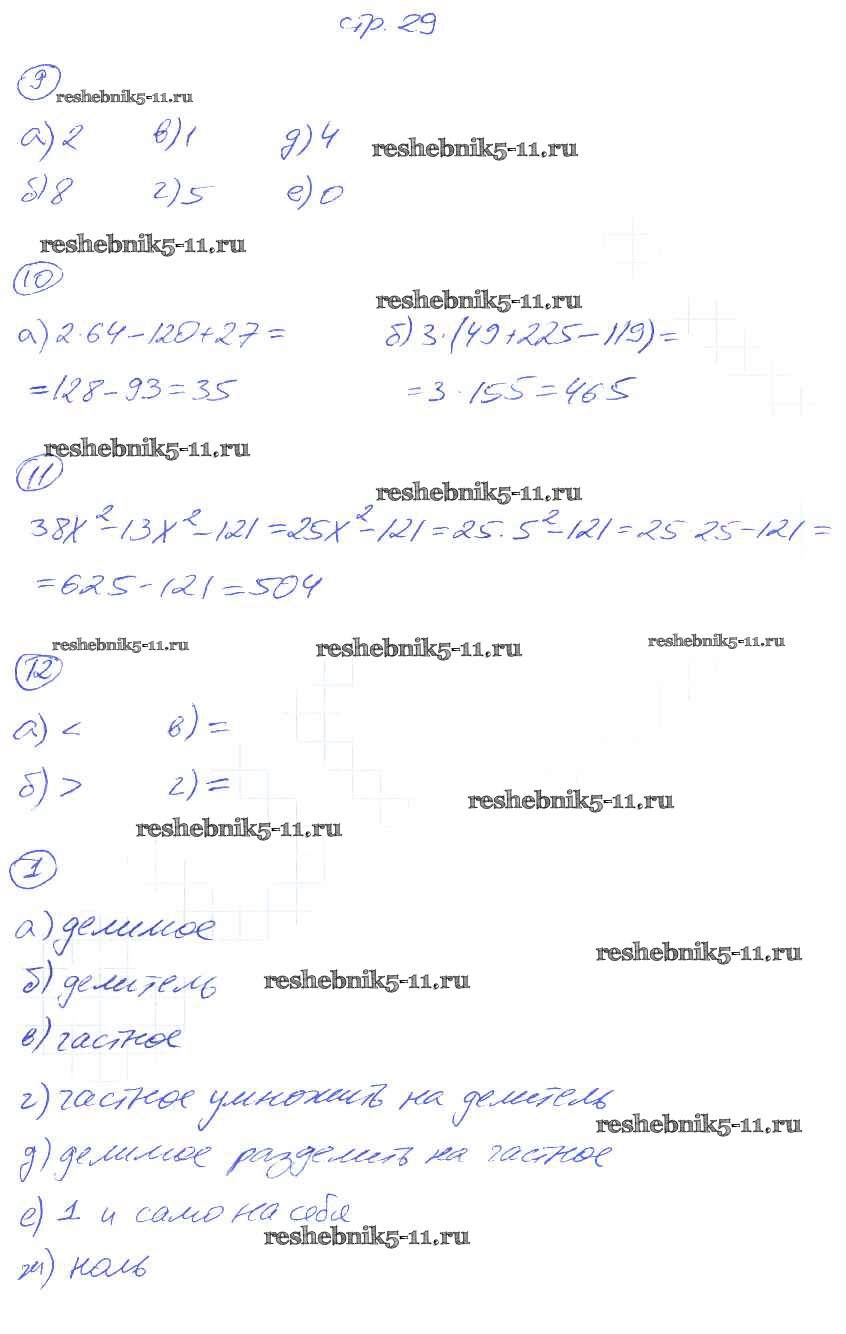 стр. 29
9
reshebnik5-11.ru
а) 2 в) 1 д) 4
reshebnik5-11.ru
б) 8 г) 5 е) 0
reshebnik5-11.ru
10
reshebnik5-11.ru
а) 2·64-120+27= б) 3·(49+225-119)=
=128-93=35 =3·155=465
reshebnik5-11.ru
11
reshebnik5-11.ru
38x²-13x²-121=25x²-121=25·5²-121=25 25-121=
=625-121=504
reshebnik5-11.ru reshebnik5-11.ru reshebnik5-11.ru
12
а) < в) =
б) > г) =
reshebnik5-11.ru
reshebnik5-11.ru
1
а) делимое
reshebnik5-11.ru
б) делитель
reshebnik5-11.ru
в) частное
г) частное умножить на делитель
reshebnik5-11.ru
д) делимое разделить на частное
е) 1 и само на себя
reshebnik5-11.ru
ж) ноль